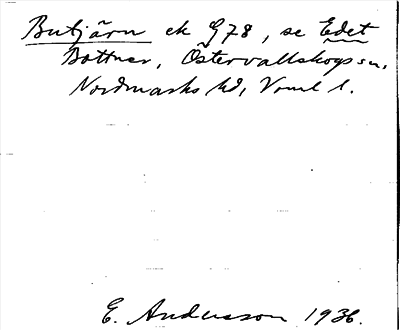 Butjärn ek G78, se Edet
Bottnar, Östervallskogs sn,
Nordmarks hd, Vrml l.
E. Andersson 1936.